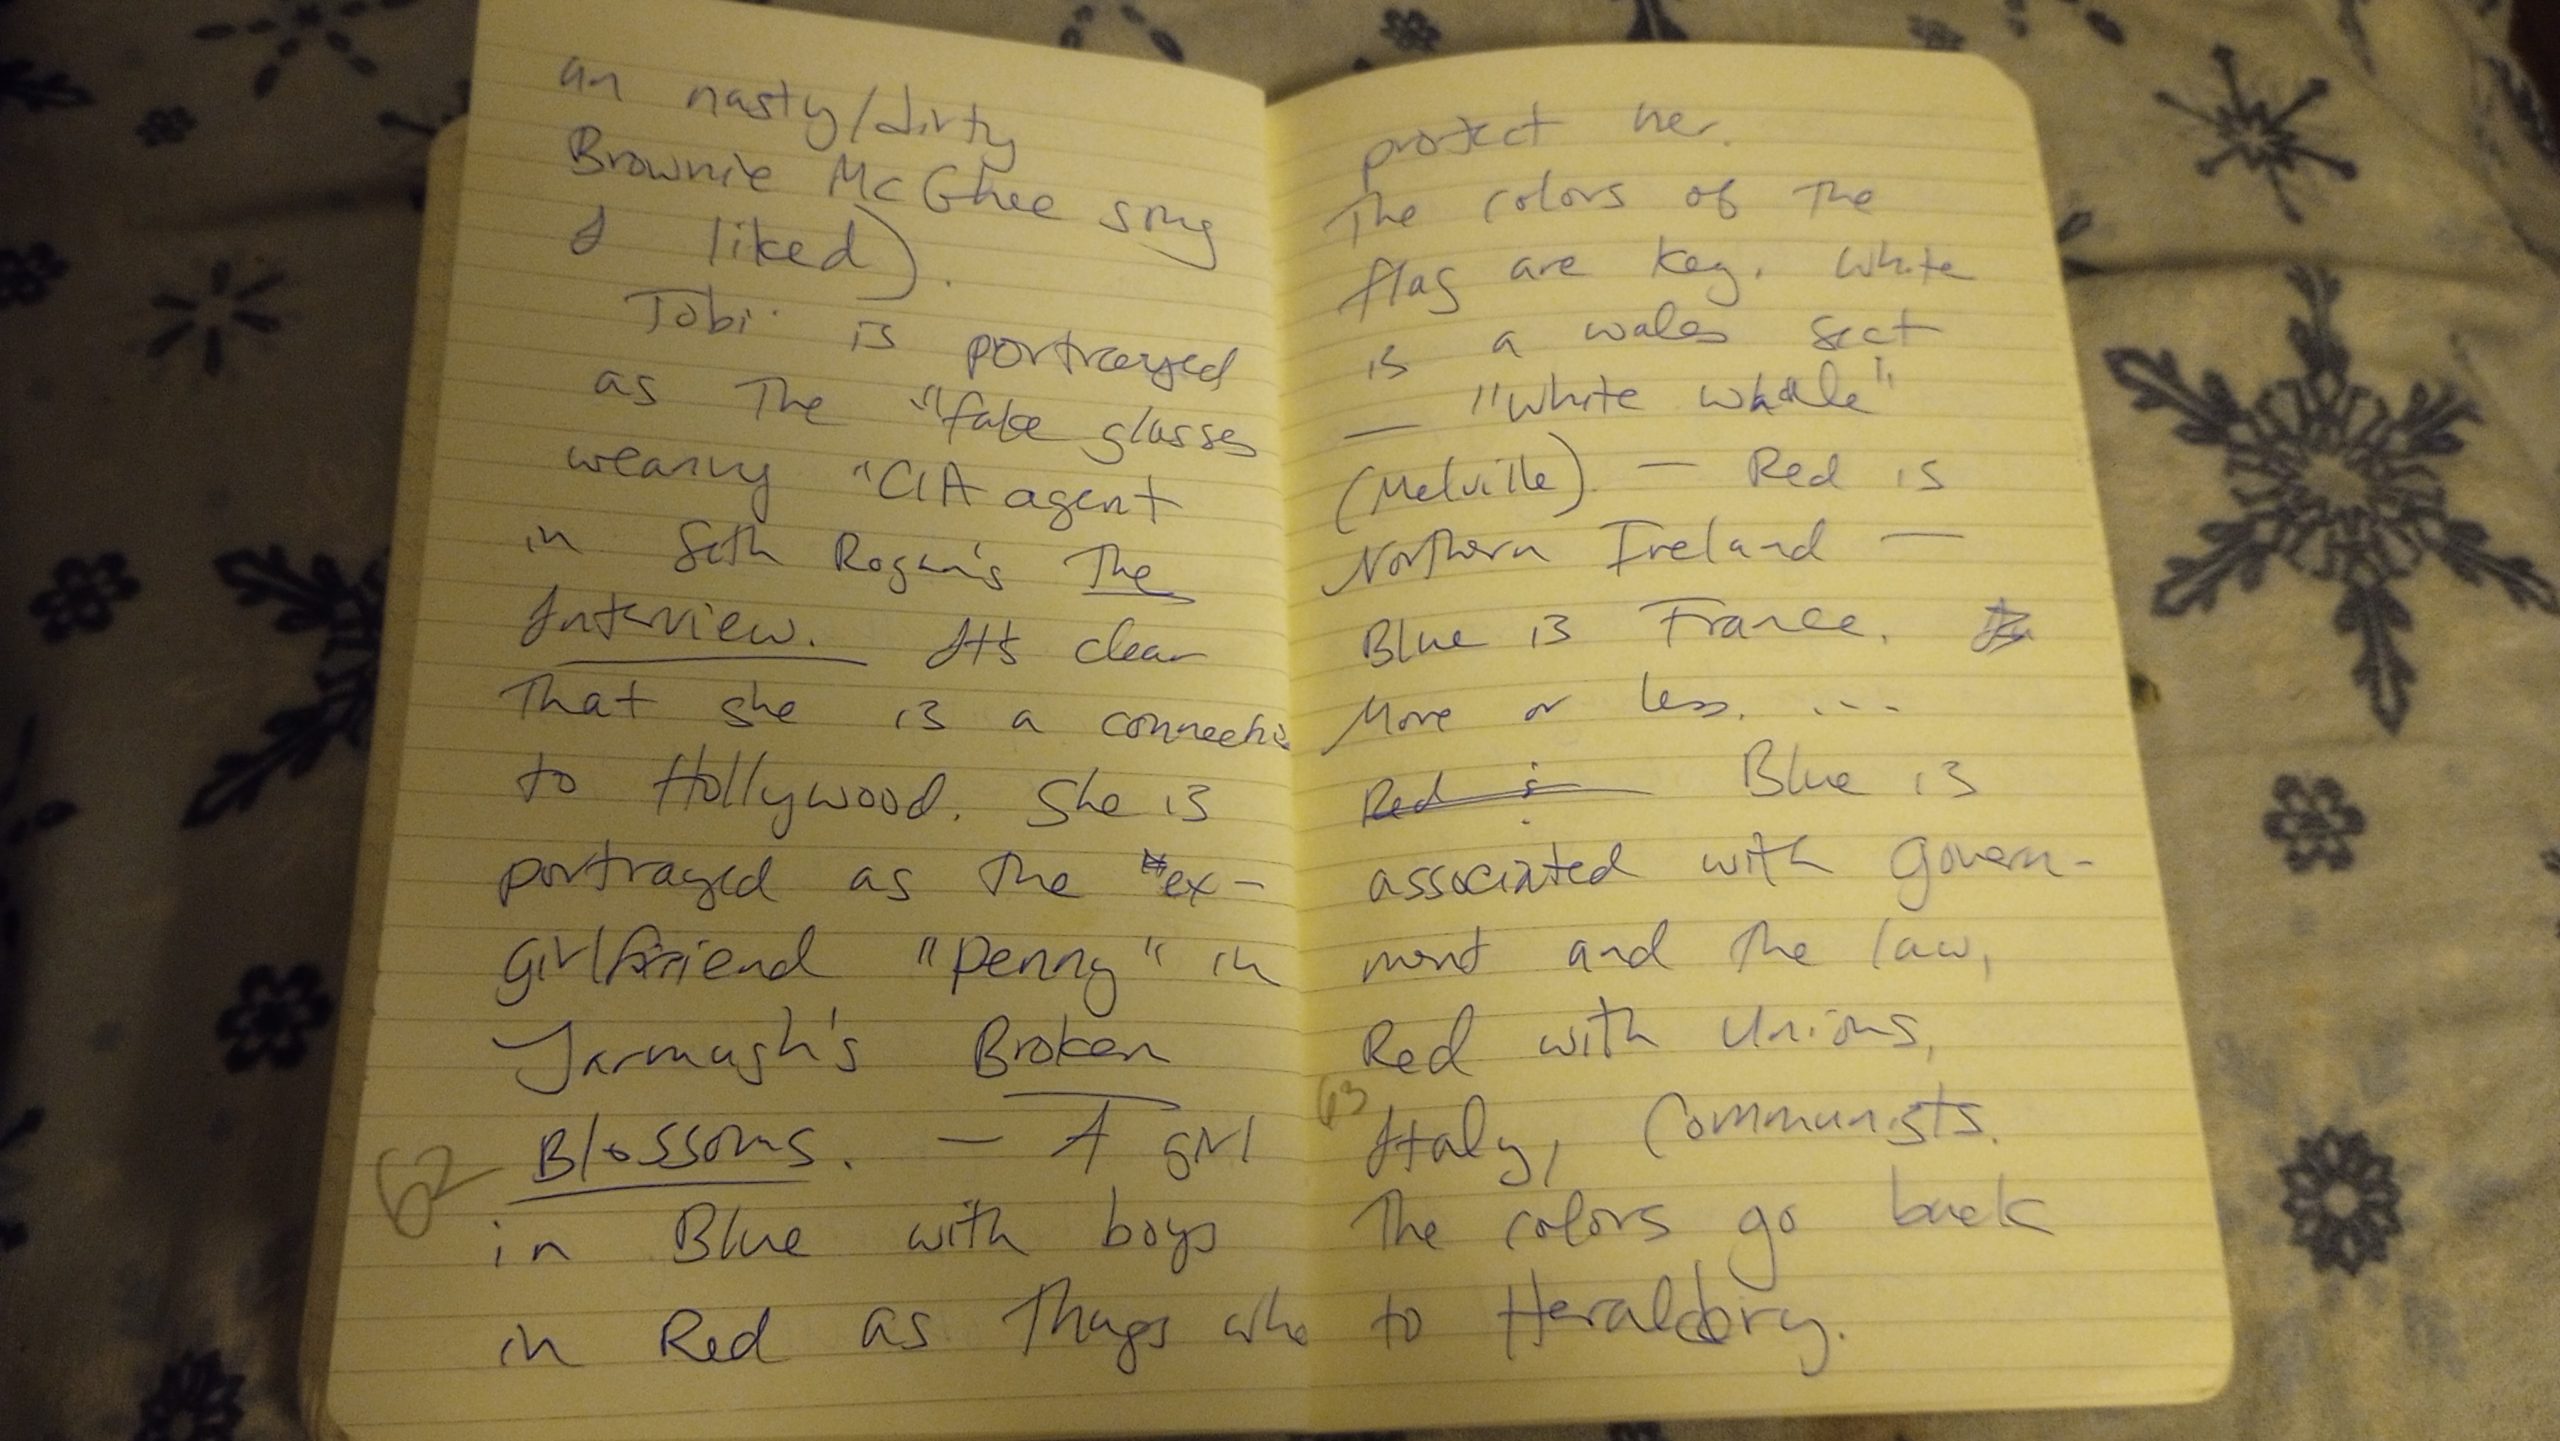 an nasty/dirty
Brownie McGhee song
I liked).
Tobi is portrayed
as The "fake glasses
wearing "CIA agent
in Seth Rogan's The
Interview. It's clear
That she is a connectio
to Hollywood. She is
portrayed as the "ex-
girlfriend "Penny" in
Jarmush's Broken
Blossoms. — A girl
in Blue with boys
in Red as Thugs who
62
protect her.
The colors of The
flag are key. White
is a wales sect
— "white whale"
(Melville). — Red is
Northern Ireland —
Blue is France.
More or less. ...
Red is Blue is
associated with govern-
ment and The law,
Red with Unions,
Italy, Communists.
The colors go back
to Heraldry.
63